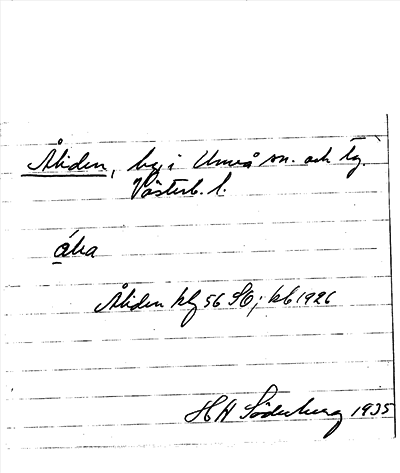 Åliden, by i Umeå sn. och tg.
Västerb. l.
Åliden klf 56 SO; kb 1926
HH Söderberg 1935